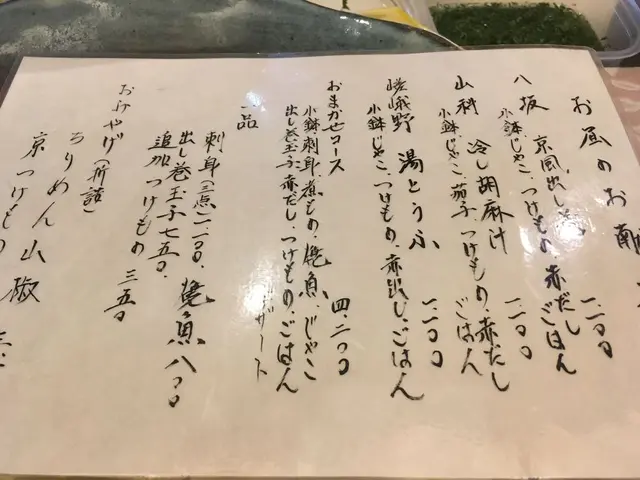 お昼のお
八坂 京風出し 一、二〇〇
小鉢、じゃこ、つけもの、赤だし
ごはん
山科 冷し胡麻汁 一、二〇〇
小鉢、じゃこ、茄子、つけもの、赤だし
ごはん
嵯峨野 湯とうふ 一、二〇〇
小鉢、じゃこ、つけもの、赤出し、ごはん
おまかせコース 四、二〇〇
小鉢、刺身、煮もの、焼魚、じゃこ
出し巻玉子、赤だし、つけもの、ごはん
デザート
一品
刺身(三点)一、二〇〇、焼魚八〇〇
出し巻玉子七五〇、
追加つけもの 三五〇
おみやげ(折詰)
ちりめん山椒
京つけもの